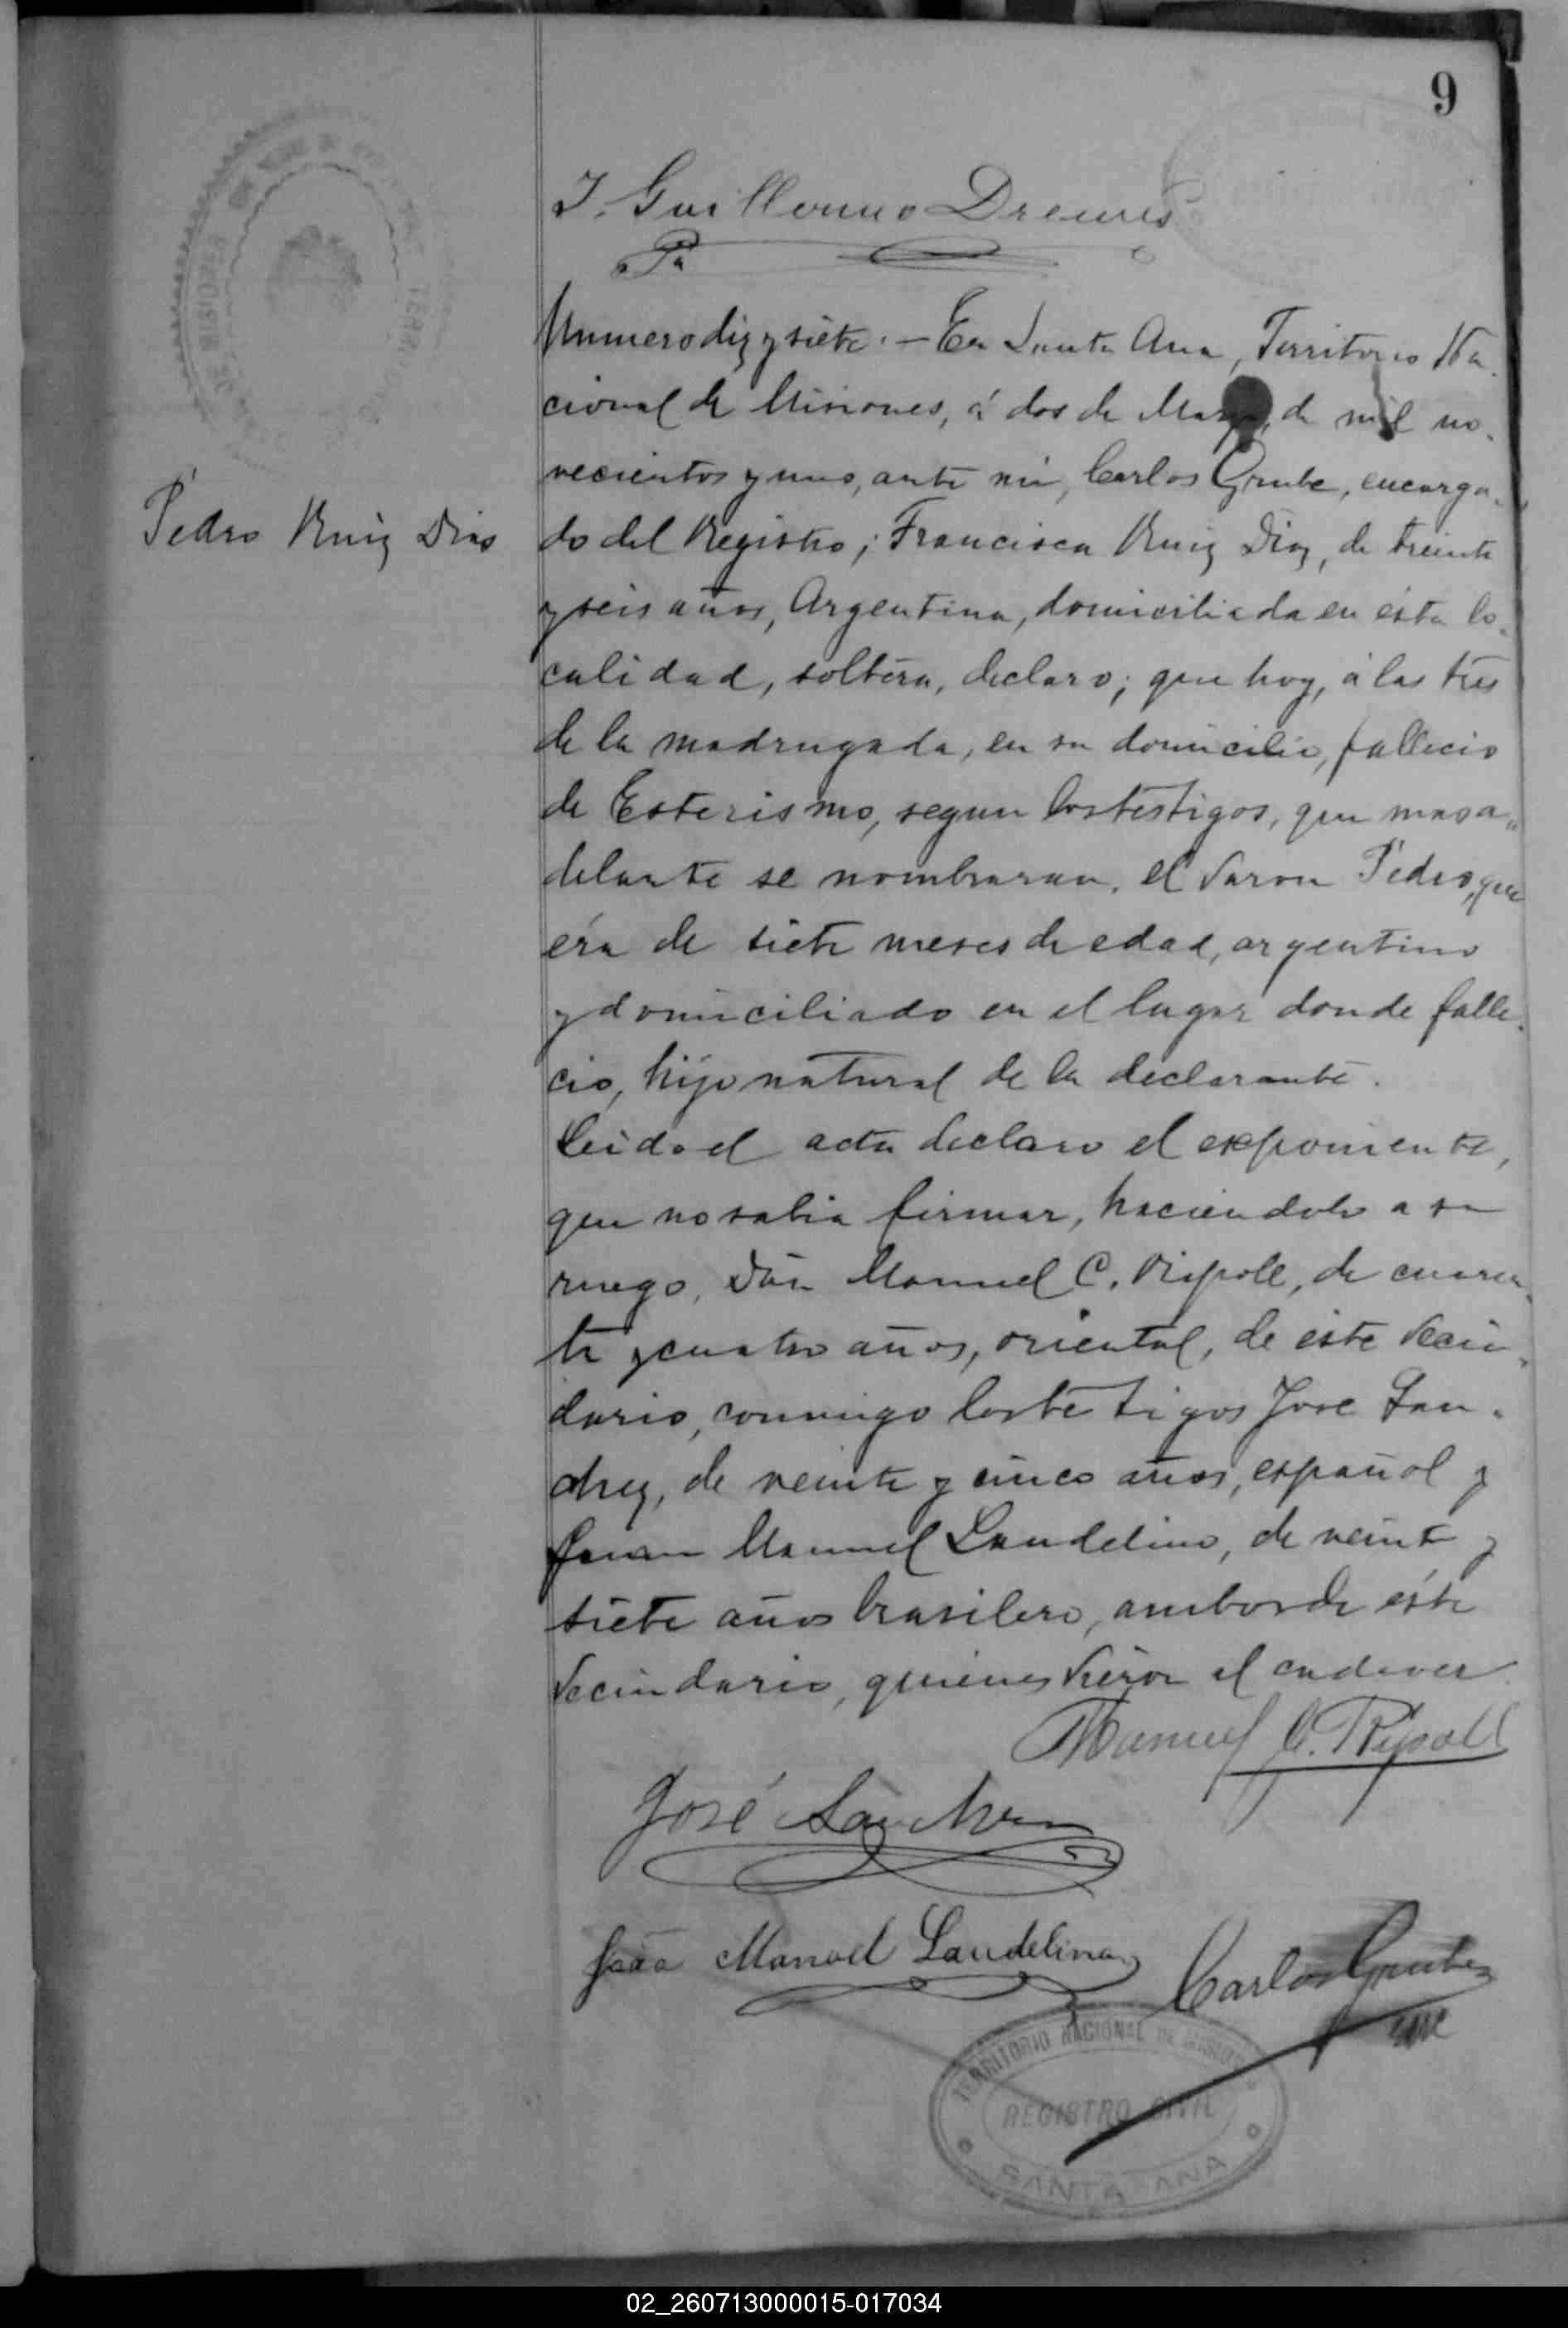 9
J. Guillermo Drewes
Pa
Numero diz y siete. - En Santa Ana, Territorio Na-
cional de Misiones, á dos de Mayo, de mil no-
vecientos y uno, ante mi, Carlos Grube, encarga-
Pedro Ruiz Dias
do del Registro; Francisca Ruiz Diaz, de treinta
y seis años, Argentina, domiciliada en ésta lo-
calidad, soltera, declaro; que hoy, á las tres
de la madrugada, en su domicilio, fallecio
de Esterismo, segun los testigos, que mas a-
delante se nombraran, el varon Pedro, que
éra de siete meses de edad, argentino
y domiciliado en el lugar donde falle-
cio, hijo natural de la declarante.
Leido el acta declaro el exponiente,
que no sabia firmar, haciendolo a su
ruego, Don Manuel C. Ripoll, de cuaren-
ta y cuatro años, oriental, de éste vecin-
dario, conmigo los testigos Jose San-
chez, de veinte y cinco años, español y
Juan Manuel Laudelino, de veinte y
siete años brasilero, ambos de éste
vecindario, quienes vieron el cadaver
Manuel C. Ripoll
José Sanchez
João Manoel Laudelino
Carlos Grube
TERRITORIO NACIONAL DE MISIONES
REGISTRO CIVIL
SANTA ANA
02_260713000015-017034